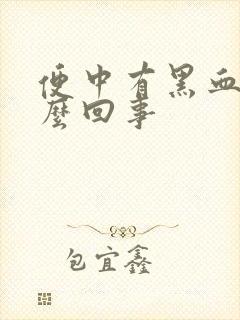 便中有黑血
麼回事
包宜鑫